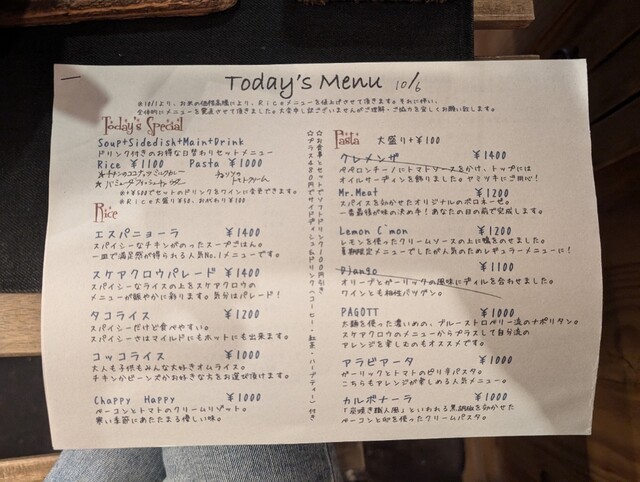 Today's Menu 10/6
※10/1より、お米の価格高騰により、Riceメニューを値上げさせて頂きます。それに伴い、
全体的にメニューを見直させて頂きました。大変申し訳ございませんがご理解・ご協力を宜しくお願い致します。
Today's Special
Soup+Sidedish+Main+Drink
ドリンク付きのお得な日替わりセットメニュー
Rice ¥1100 Pasta ¥1000
※+¥100でセットのドリンクをワインに変更できます。
※Rice大盛り¥50、おかわり¥100
Rice
エスパニョーラ ¥1400
スパイシーなチキンがのったスープごはん。
一皿で満足感が得られる人気No.1メニューです。
スケアクロウパレード ¥1400
スパイシーなライスの上をスケアクロウの
メニューが賑やかに彩ります。気分はパレード!
タコライス ¥1200
スパイシーだけど食べやすい。
スパイシーさはマイルドにもホットにも出来ます。
コッコライス ¥1000
大人も子供もみんな大好きオムライス。
チキンかビーンズかお好きな方をお選び頂けます。
Chappy Happy ¥1000
ベーコンとトマトのクリームリゾット。
寒い季節にあたたまる優しい味。
☆お食事とセットでソフトドリンク100円引き
☆プラス480円でサイドディッシュ&ドリンク(コーヒー・紅茶・ハーブティー)付き
Pasta 大盛り+¥100
クレメンザ ¥1400
ペペロンチーノにトマトソースをかけ、トップには
オイルサーディンを飾りました。ヤミツキにご用心!
Mr.Meat ¥1200
スパイスを効かせたオリジナルのボロネーゼ。
一番最後が味の決め手!あなたの目の前で完成します。
Lemon C'mon ¥1200
レモンを使ったクリームソースの上に鴨をのせました。
夏期限定メニューでしたが人気のためレギュラーメニューに!
Django ¥1100
オリーブとガーリックの風味にディルを合わせました。
ワインとも相性バツグン。
PAGOTT ¥1000
太麺を使った濃いめの、ブルーストロベリー流のナポリタン。
スケアクロウのメニューからプラスして自分流の
アレンジを楽しむのもオススメです。
アラビアータ ¥1000
ガーリックとトマトのピリ辛パスタ。
こちらもアレンジが楽しめる人気メニュー。
カルボナーラ ¥1000
「炭焼き職人風」といわれる黒胡椒を効かせた
ベーコンと卵を使ったクリームパスタ。